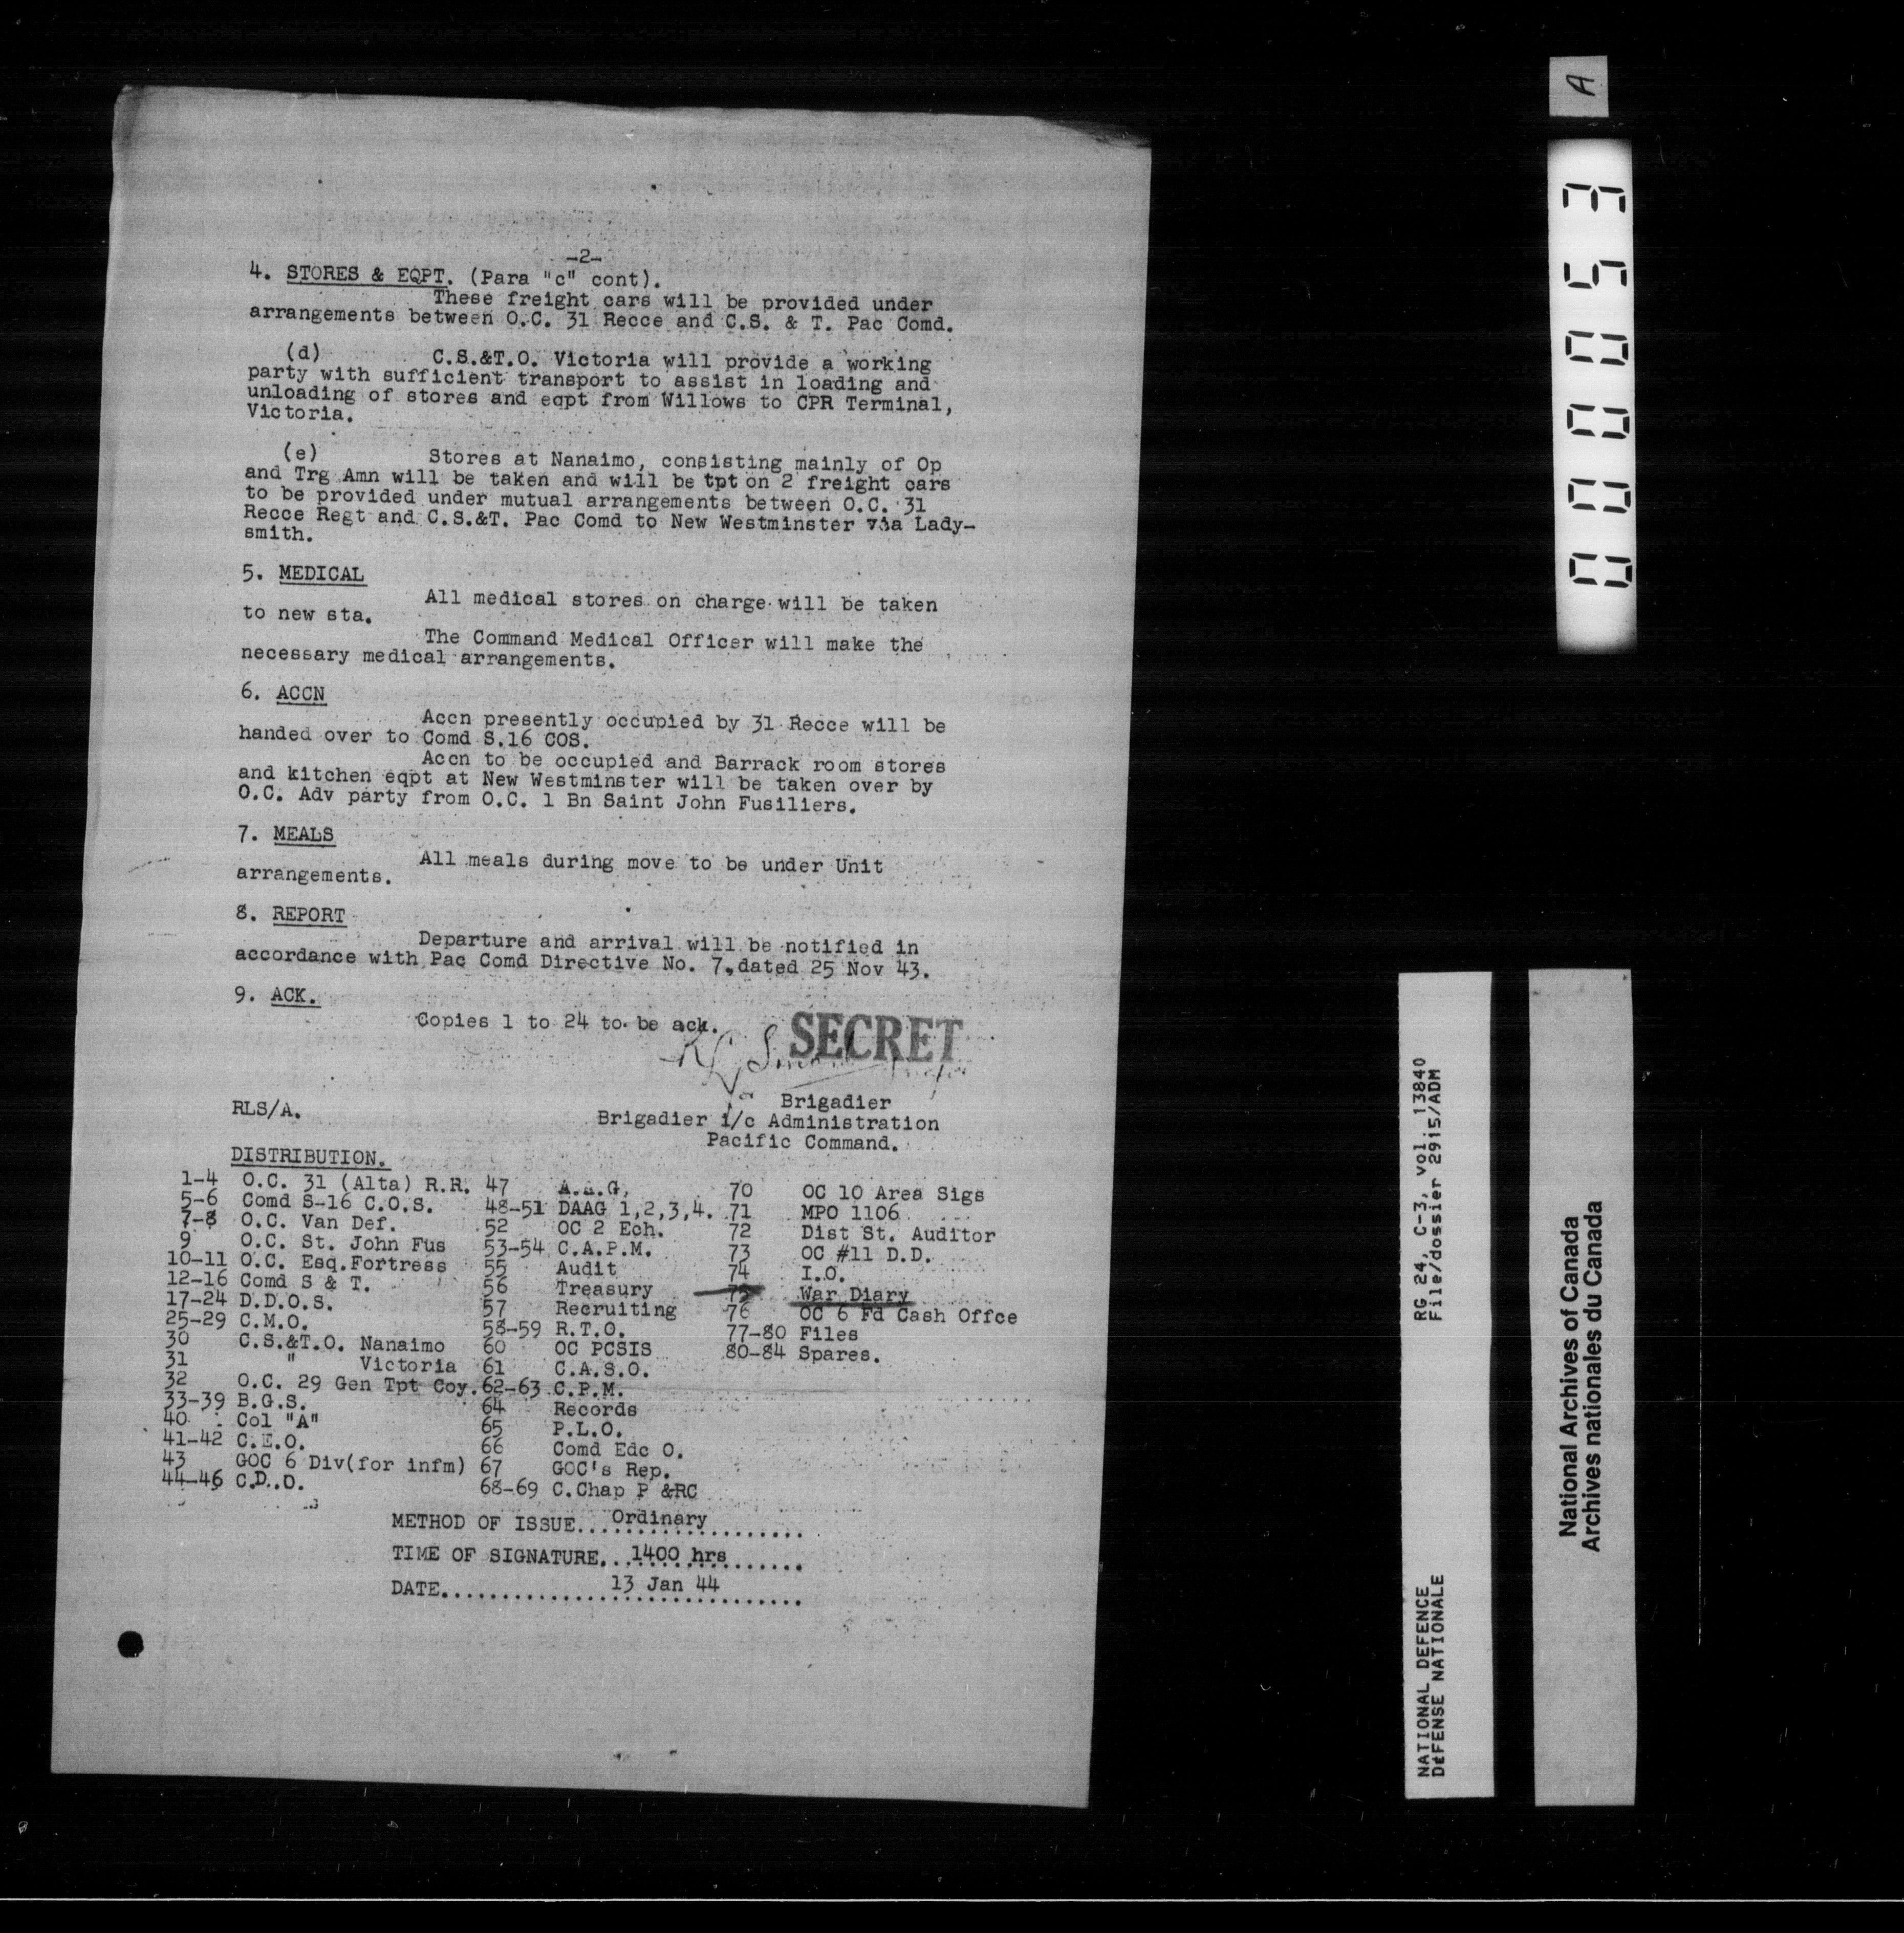 -2-
4. STORES & EQPT. (Para "c" cont).
These freight cars will be provided under
arrangements between O.C. 31 Recce and C.S. & T. Pac Comd.
(d) C.S.&T.O. Victoria will provide a working
party with sufficient transport to assist in loading and
unloading of stores and eqpt from Willows to CPR Terminal,
Victoria.
(e) Stores at Nanaimo, consisting mainly of Op
and Trg Amn will be taken and will be tpt on 2 freight cars
to be provided under mutual arrangements between O.C. 31
Recce Regt and C.S.&T. Pac Comd to New Westminster via Lady-
smith.
5. MEDICAL
All medical stores on charge will be taken
to new sta.
The Command Medical Officer will make the
necessary medical arrangements.
6. ACCN
Accn presently occupied by 31 Recce will be
handed over to Comd S.16 COS.
Accn to be occupied and Barrack room stores
and kitchen eqpt at New Westminster will be taken over by
O.C. Adv party from O.C. 1 Bn Saint John Fusiliers.
7. MEALS
All meals during move to be under Unit
arrangements.
8. REPORT
Departure and arrival will be notified in
accordance with Pac Comd Directive No. 7, dated 25 Nov 43.
9. ACK.
Copies 1 to 24 to be ack.
SECRET
Brigadier
RLS/A. Brigadier i/c Administration
Pacific Command.
DISTRIBUTION.
1-4 O.C. 31 (Alta) R.R. 47 A.A.G, 70 OC 10 Area Sigs
5-6 Comd S-16 C.O.S. 48-51 DAAG 1,2,3,4. 71 MPO 1106
7-8 O.C. Van Def. 52 OC 2 Ech. 72 Dist St. Auditor
9 O.C. St. John Fus 53-54 C.A.P.M. 73 OC #11 D.D.
10-11 O.C. Esq.Fortress 55 Audit 74 I.O.
12-16 Comd S & T. 56 Treasury 75 War Diary
17-24 D.D.O.S. 57 Recruiting 76 OC 6 Fd Cash Offce
25-29 C.M.O. 58-59 R.T.O. 77-80 Files
30 C.S.&T.O. Nanaimo 60 OC PCSIS 80-84 Spares.
31 " Victoria 61 C.A.S.O.
32 O.C. 29 Gen Tpt Coy. 62-63 C.P.M.
33-39 B.G.S. 64 Records
40 Col "A" 65 P.L.O.
41-42 C.E.O. 66 Comd Edc O.
43 GOC 6 Div(for infm) 67 GOC's Rep.
44-46 C.D..O. 68-69 C.Chap P &RC
METHOD OF ISSUE...Ordinary
TIME OF SIGNATURE...1400 hrs
DATE..............13 Jan 44
A
000053
RG 24, C-3, vol. 13840
File/dossier 2915/ADM
NATIONAL DEFENCE
DéFENSE NATIONALE
National Archives of Canada
Archives nationales du Canada